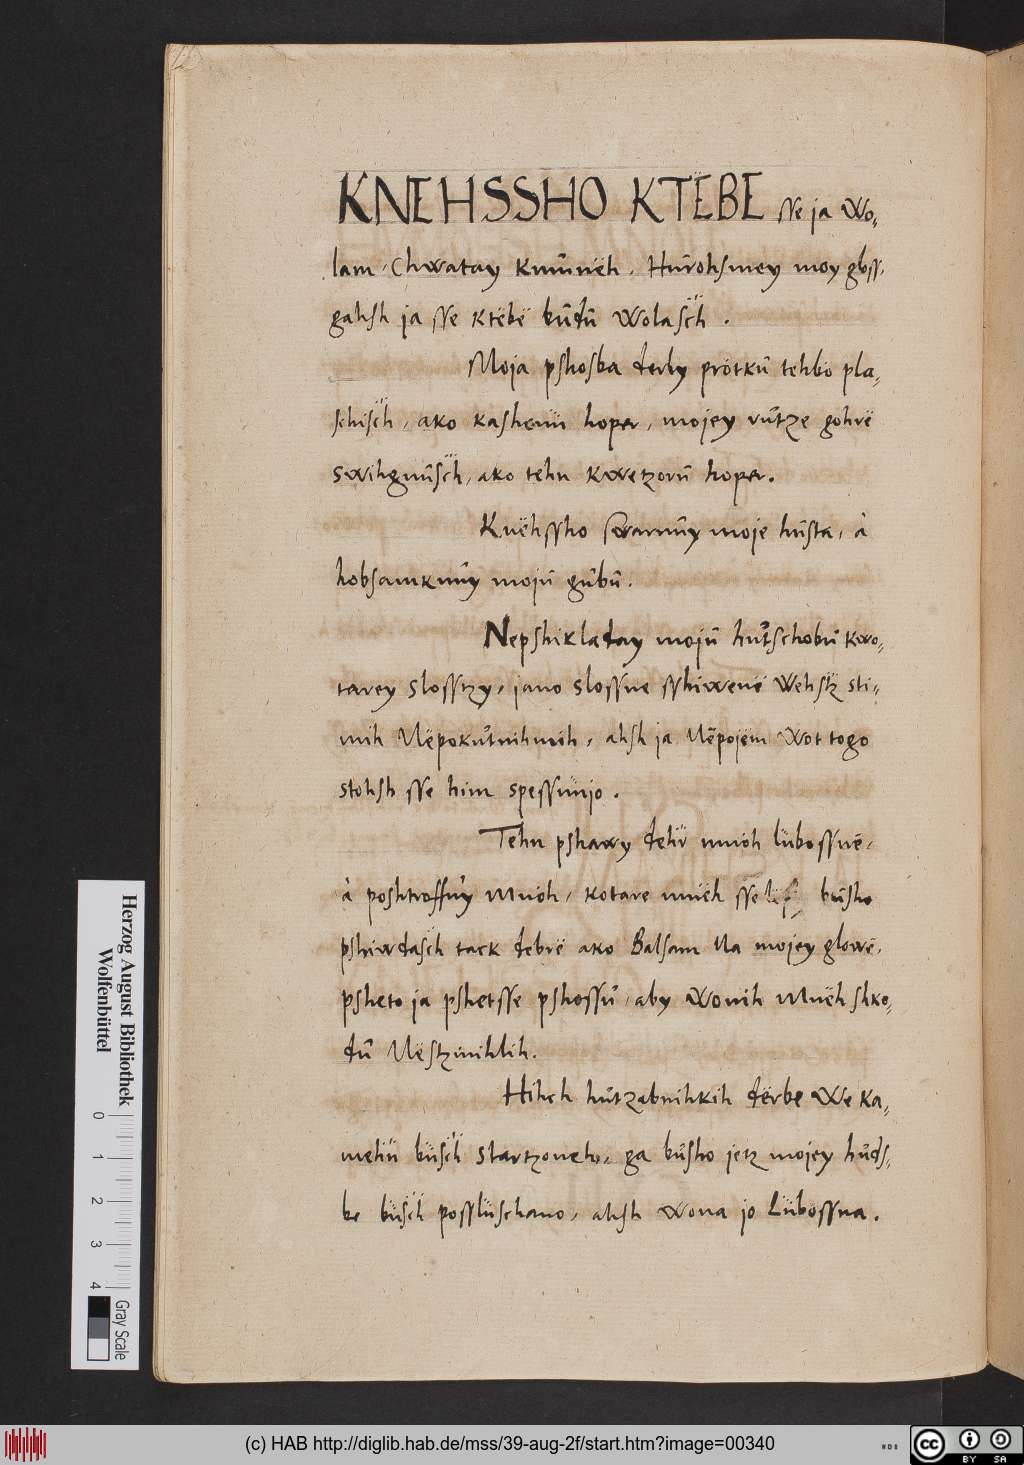 KNEHSSHO KTËBË sse ja Wo-
lam, Chwatay kmünëh. Hürohsmey moy gloss,
gahsh ja sse ktëbë büdü wolasch̎.
Moja pshosba derby prötkü tehbö pla-
schisch̎, ako kashenü hoper, mojey rütze gohrë
swihgnüsch̎, ako tehn kwetzorü hoper.
Knëhssho moje hüsta, à
hobsamknüy mojü gübü.
Nepshikladay mojü hütschobü kwo-
tarey slosstzy, jano slossne sshiwenë Wehstz sti-
mih Nëpokütnihmih, ahsh ja Nëpojëm Wot togo
stohsh sse him spessünjo.
Tehn pshawy dehr mnöh lübossnë,
à poshtroffüy Mnöh, kotare mnëh sse büsho
pshiwdasch̎ tack debrë ako Balsam Na mojey glowë,
psheto ja pshetsse pshossü, aby Wonih Mnëh shko-
dü Nëstzinihlih.
Hihch hützabnihkih dërbe We ka-
mehü büsch̎ startzoneh, ga büsho jetz mojey hüds-
be büsch̎ posslüschano, ahsh wona jo Lübossna.
Herzog August Bibliothek
Wolfenbüttel
0 1 2 3 4
Gray Scale
(c) HAB http://diglib.hab.de/mss/39-aug-2f/start.htm?image=00340
WDB
cc BY SA